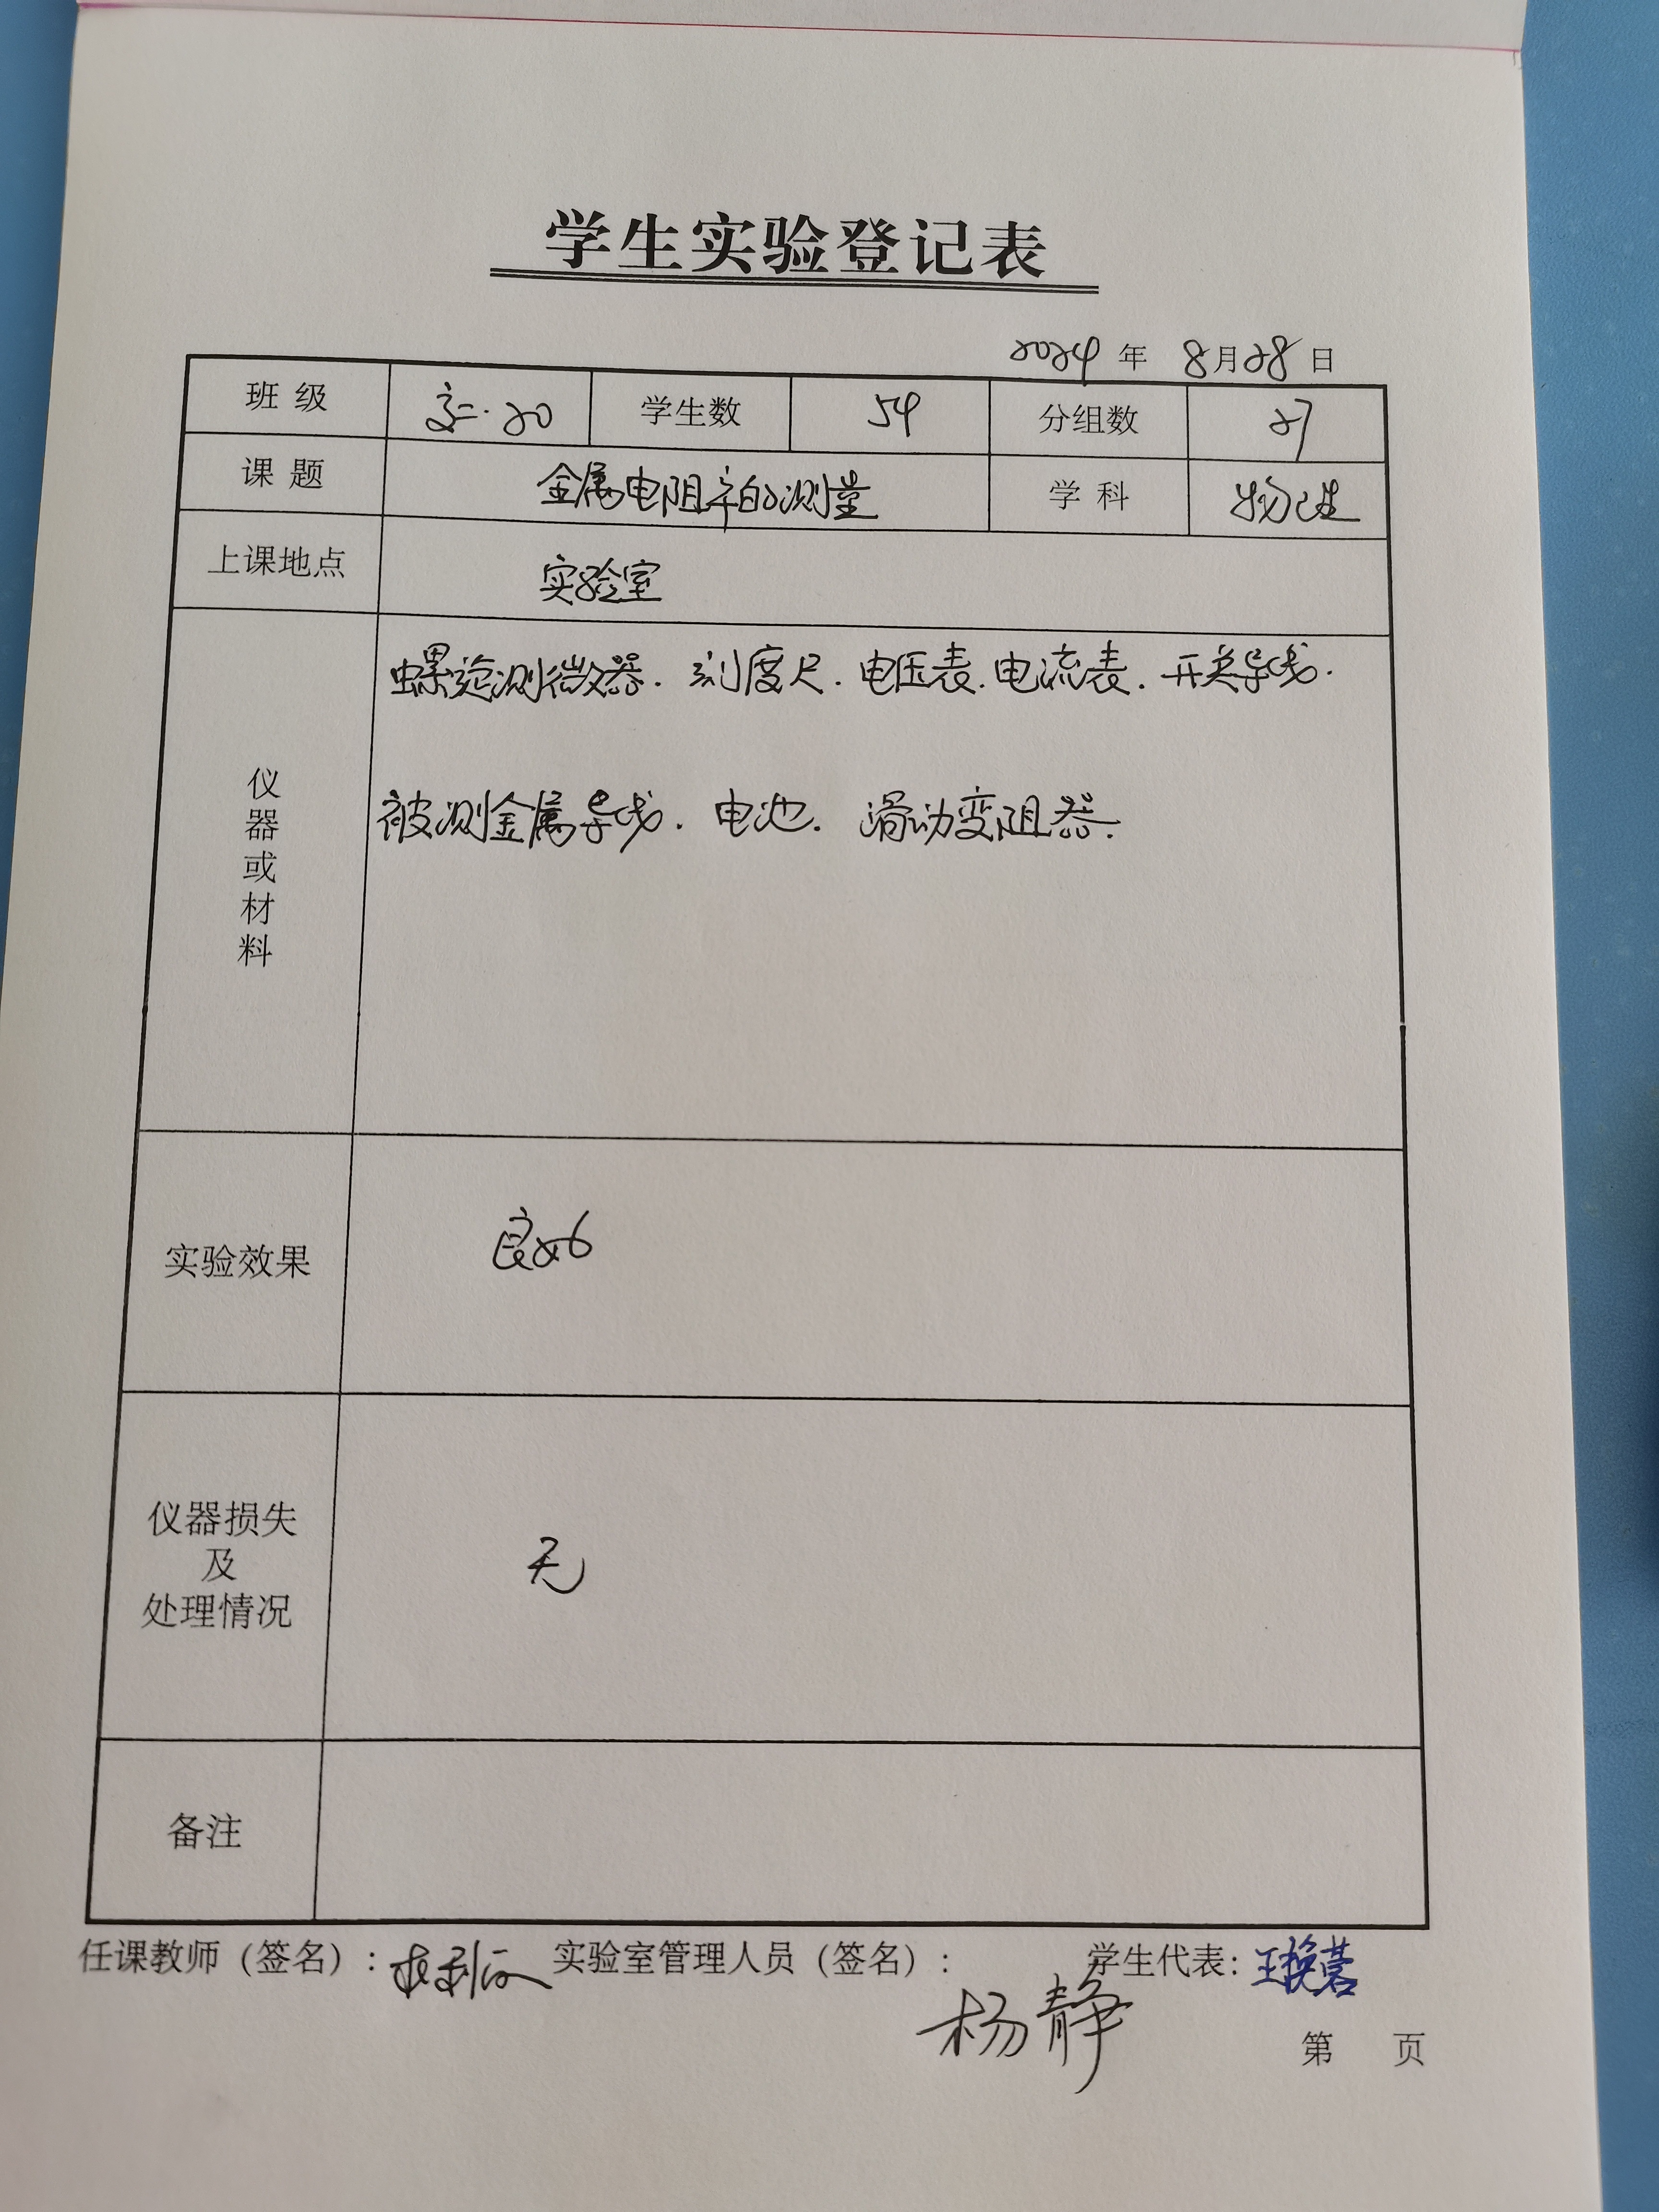 学生实验登记表
2024 年 8月28日
班级 高二.20 学生数 54 分组数 27
课题 金属电阻率的测量 学科 物理
上课地点 实验室
仪器或材料
螺旋测微器.刻度尺.电压表.电流表.开关导线.
被测金属导线.电池.滑动变阻器.
实验效果 良好
仪器损失
及
处理情况
无
备注
任课教师（签名）: 实验室管理人员（签名）: 学生代表:
杨静
第 页